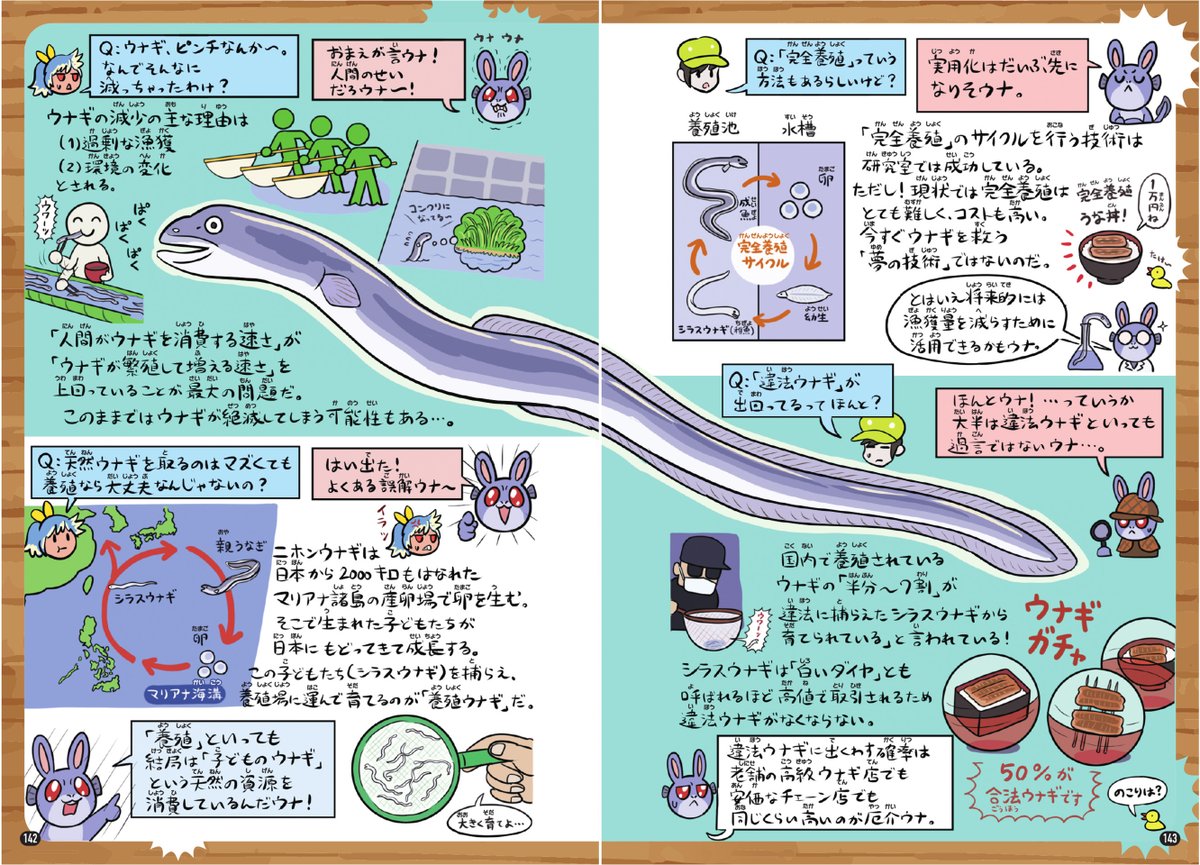 Q:ウナギ、ピンチなんか〜。
なんでそんなに
減っちゃったわけ？
おまえが言ウナ！
人間のせい
だろウナ〜！
ウナ ウナ
ウナギの減少の主な理由は
(1)過剰な漁獲
(2)環境の変化
とされる。
ウワーッ
ぱく
ぱく
ぱく
コンクリに
なってる〜
「人間がウナギを消費する速さ」が
「ウナギが繁殖して増える速さ」を
上回っていることが最大の問題だ。
このままではウナギが絶滅してしまう可能性もある…。
Q:天然ウナギを取るのはマズくても
養殖なら大丈夫なんじゃないの？
はい出た！
よくある誤解ウナ〜
イラッ
親うなぎ
シラスウナギ
卵
マリアナ海溝
ニホンウナギは
日本から2000キロもはなれた
マリアナ諸島の産卵場で卵を生む。
そこで生まれた子どもたちが
日本にもどってきて成長する。
この子どもたち(シラスウナギ)を捕らえ、
養殖場に運んで育てるのが「養殖ウナギ」だ。
「養殖」といっても
結局は「子どものウナギ」
という天然の資源を
消費しているんだウナ！
大きく育てよ…
142
Q:「完全養殖」っていう
方法もあるらしいけど？
実用化はだいぶ先に
なりそウナ。
養殖池
水槽
成魚
卵
完全養殖
サイクル
シラスウナギ(稚魚)
幼生
「完全養殖」のサイクルを行う技術は
研究室では成功している。
ただし！現状では完全養殖は
とても難しく、コストも高い。
今すぐウナギを救う
「夢の技術」ではないのだ。
完全養殖
うな丼！
1万円ね
たけー
とはいえ将来的には
漁獲量を減らすために
活用できるかもウナ。
Q:「違法ウナギ」が
出回ってるってほんと？
ほんとウナ！…っていうか
大半は違法ウナギといっても
過言ではないウナ…。
ウワーッ
国内で養殖されている
ウナギの「半分〜7割」が
違法に捕らえたシラスウナギから
育てられている」と言われている！
シラスウナギは「白いダイヤ」とも
呼ばれるほど高値で取引されるため
違法ウナギがなくならない。
ウナギ
ガチャ
違法ウナギに出くわす確率は
老舗の高級ウナギ店でも
安価なチェーン店でも
同じくらい高いのが厄介ウナ。
50%が
合法ウナギです
のこりは？
143